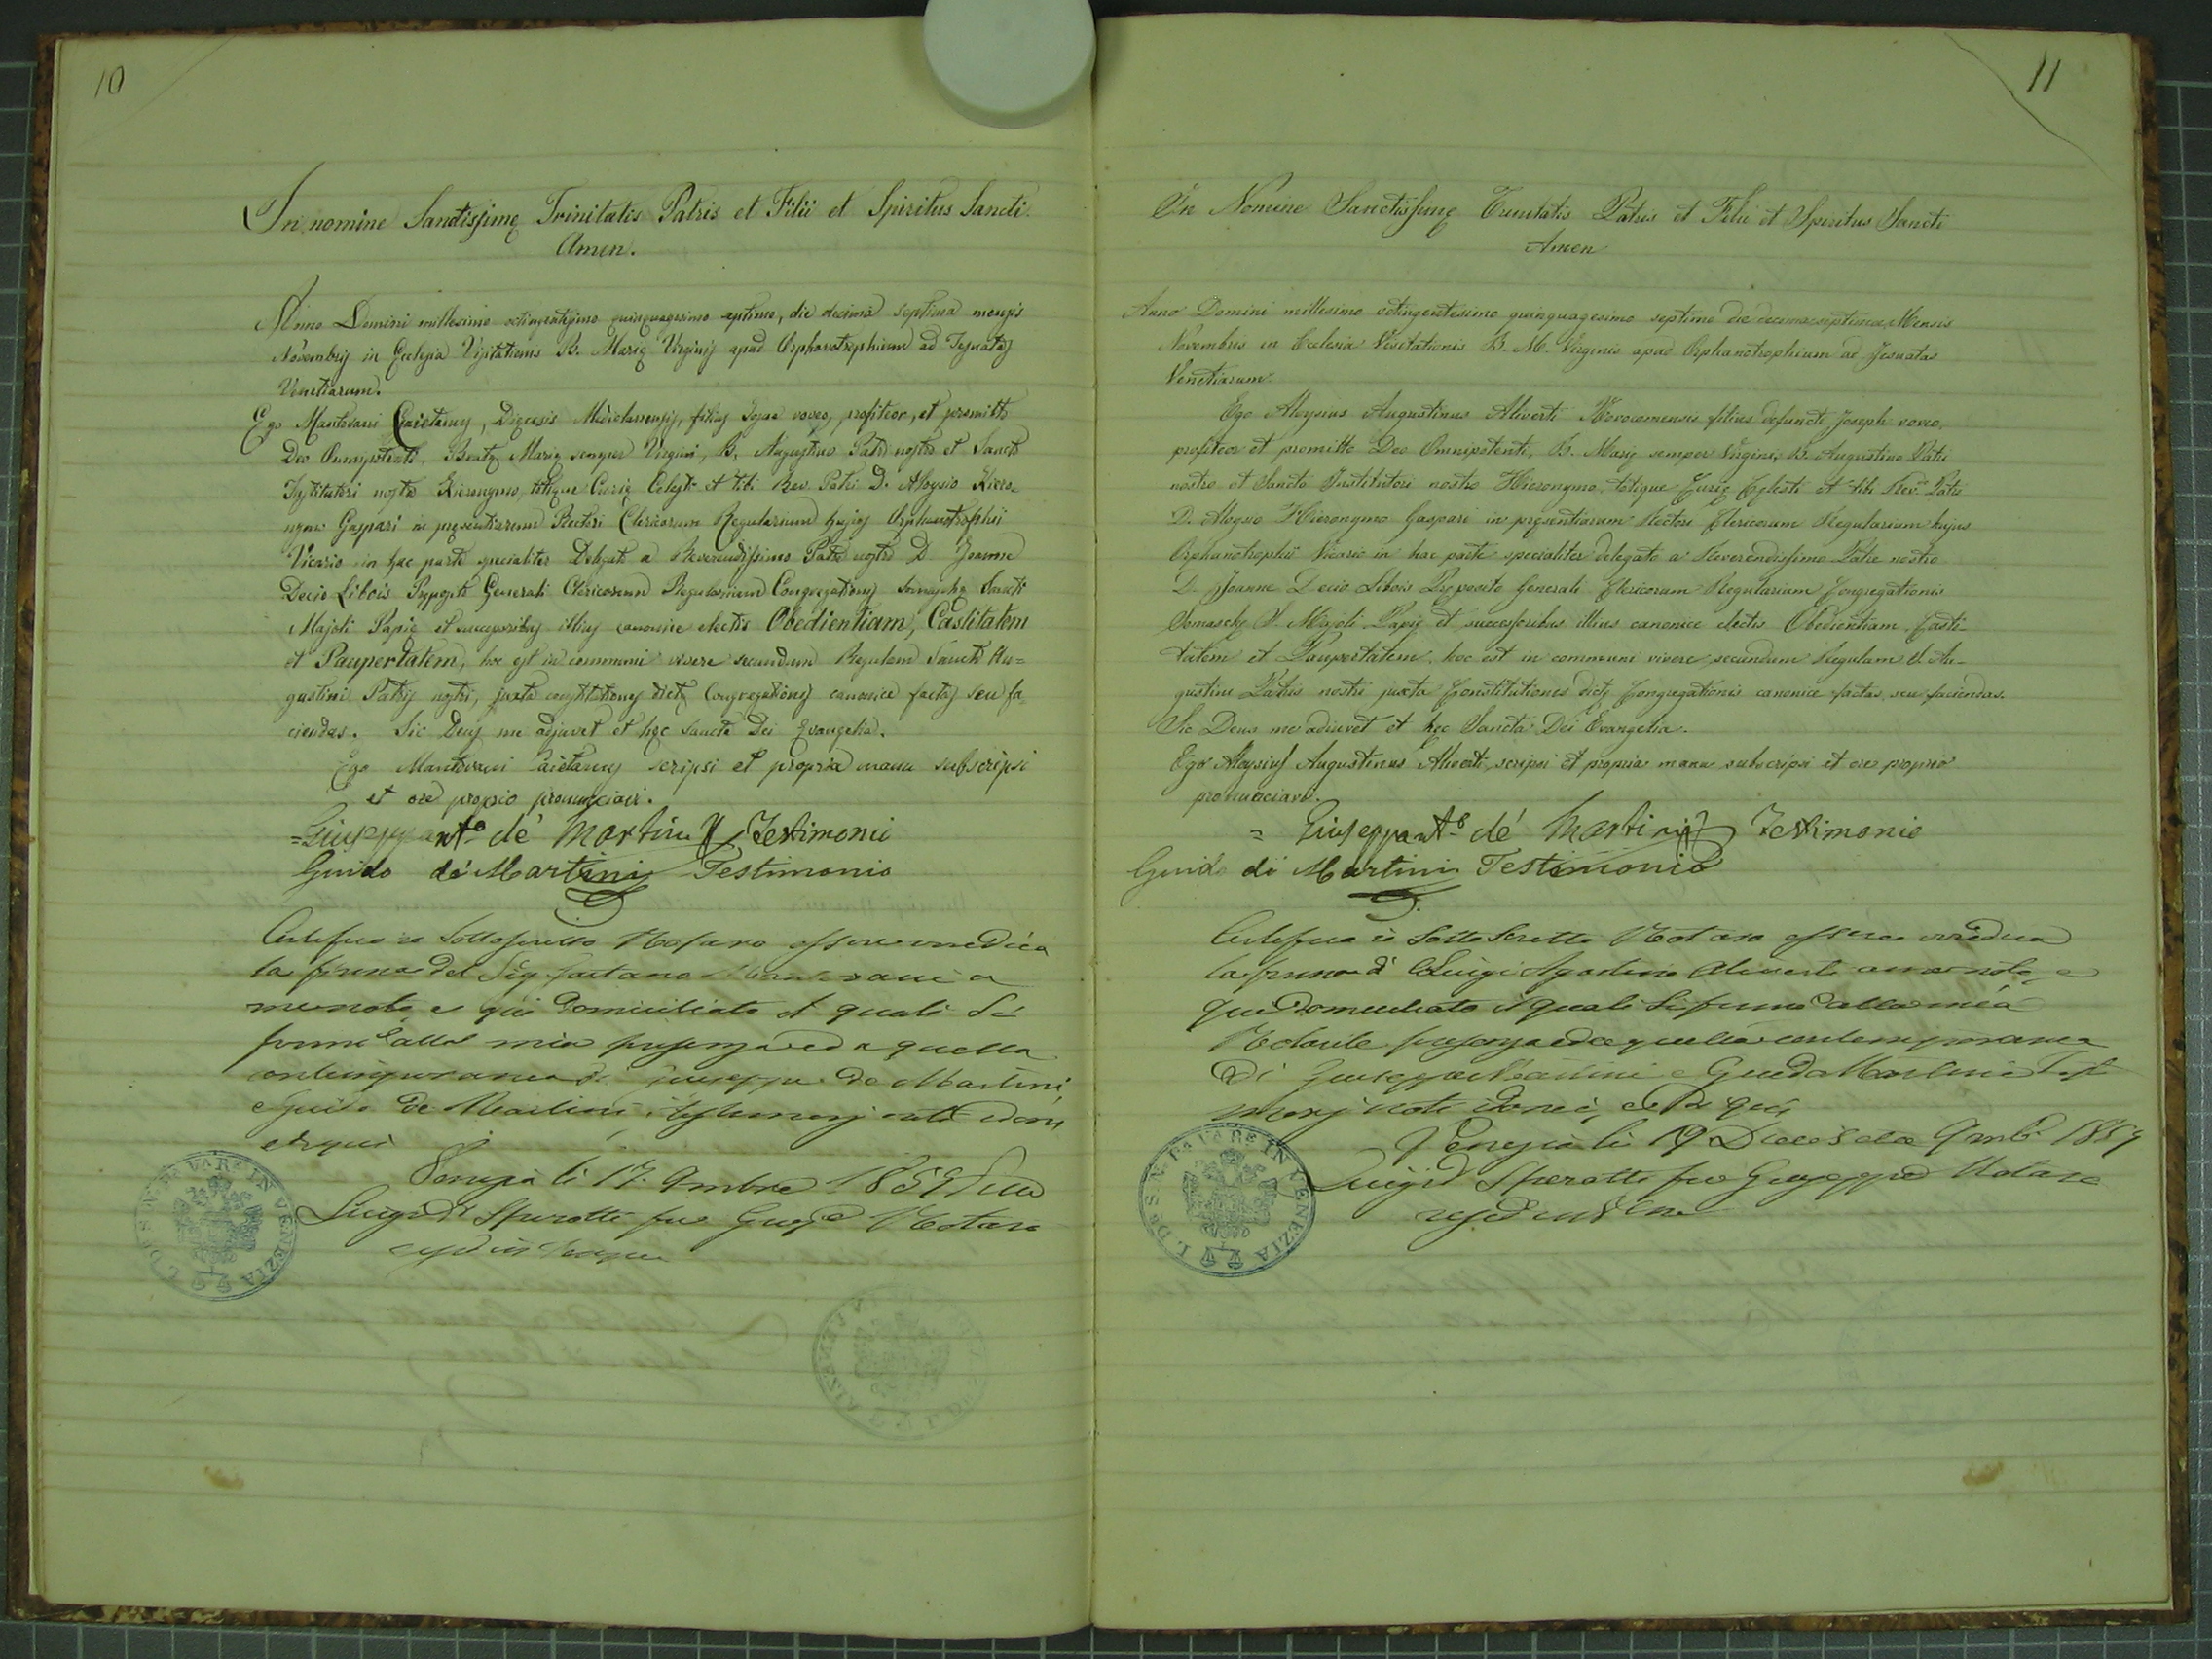 10
In nomine Sanctissimę Trinitatis Patris et Filii et Spiritus Sancti.
Amen.
Anno Domini millesimo octingentesimo quinquagesimo septimo, die decima septima mensis
Novembris in Ecclesia Visitationis B. Marię Virginis apud Orphanotrophium ad Jesuatas
Venetiarum.
Ego Mantovani Cajetanus, Diœcesis Mediolanensis, filius voveo, profiteor, et promitto
Deo Omnipotenti, Beatę Marię semper Virgini, B. Augustino Patri nostro et Sancto
Institutori nostro Hieronymo, totique Curię Celesti et tibi Rev. Patri D. Aloysio Hiero-
nymo Gaspari in pręsentiarum Rectori Clericorum Regularium hujus Orphanotrophii
Vicario in hac parte specialiter Delegato a Reverendissimo Patre nostro D. Joanne
Decio Libois Pręposito Generali Clericorum Regularium Congregationis Somaschę Sancti
Majoli Papię et successoribus illius canonice electis Obedientiam, Castitatem
et Paupertatem, hoc est in communi vivere secundum Regulam Sancti Au=
gustini Patris nostri, juxta constitutiones dictę Congregationis canonice factas seu fa-
ciendas. Sic Deus me adjuvet et hęc Sancta Dei Evangelia.
Ego Mantovani Cajetanus scripsi et propria manu subscripsi
et ore proprio pronunciavi.
=Giuseppe Anto. de' Martini Testimonio
Guido de' Martini Testimonio
Certifico io Sottoscritto Notaro essere veridica
la firma del Sig. Gaetano Mantovani a
me noto, e qui domiciliato il quale si
firmò alla mia presenza ed a quella
contemporanea di Giuseppe de Martini,
e Guido De Martini, testimonj noti idonei
e di qui
Venezia li 17. 9mbre 1857
Luigi Dr Sperotti fu Gius.e Notaro
resid. in Venezia
L. Dr S. N. Pa VA Re IN VENEZIA
11
In Nomine Sanctissimę Trinitatis Patris et Filii et Spiritus Sancti
Amen
Anno Domini millesimo octingentesimo quinquagesimo septimo die decima septima Mensis
Novembris in Ecclesia Visitationis B. M. Virginis apud Orphanotrophium ad Jesuatas
Venetiarum.
Ego Aloysius Augustinus Aliverti Novocomensis filius defuncti Joseph voveo,
profiteor et promitto Deo Omnipotenti, B. Marię semper Virgini, B. Augustino Patri
nostro et Sancto Institutori nostro Hieronymo, totique Curię Cęlesti et tibi Rev. Patri
D. Aloysio Hieronymo Gaspari in pręsentiarum Rectori Clericorum Regularium hujus
Orphanotrophii Vicario in hac parte specialiter delegato a Reverendissimo Patre nostro
D. Joanne Decio Libois Pręposito Generali Clericorum Regularium Congregationis
Somaschę S. Majoli Papię et successoribus illius canonice electis Obedientiam, Casti-
tatem et Paupertatem, hoc est in communi vivere secundum Regulam S. Au-
gustini Patris nostri juxta Constitutiones dictę Congregationis canonice factas, seu faciendas.
Sic Deus me adiuvet et hęc Sancta Dei Evangelia.
Ego Aloysius Augustinus Aliverti scripsi et propria manu subscripsi et ore proprio
pronunciavi.
= Giuseppe Anto. de' Martini Testimonio
Guido di Martini Testimonio
Certifico io Sottoscritto Notaro essere veridica
la firma di Luigi Agostino Aliverti a me noto, e
qui domiciliato il quale si firmò alla mia
Notarile presenza ed a quella contemporanea
di Giuseppe Martini e Guido Martini Testi
monj noti idonei, e di qui,
Venezia li 17 Diecisette 9mbe 1857
Luigi Dr Sperotti fu Giuseppe Notaro
L. Dr S. N. Pa VA Re IN VENEZIA